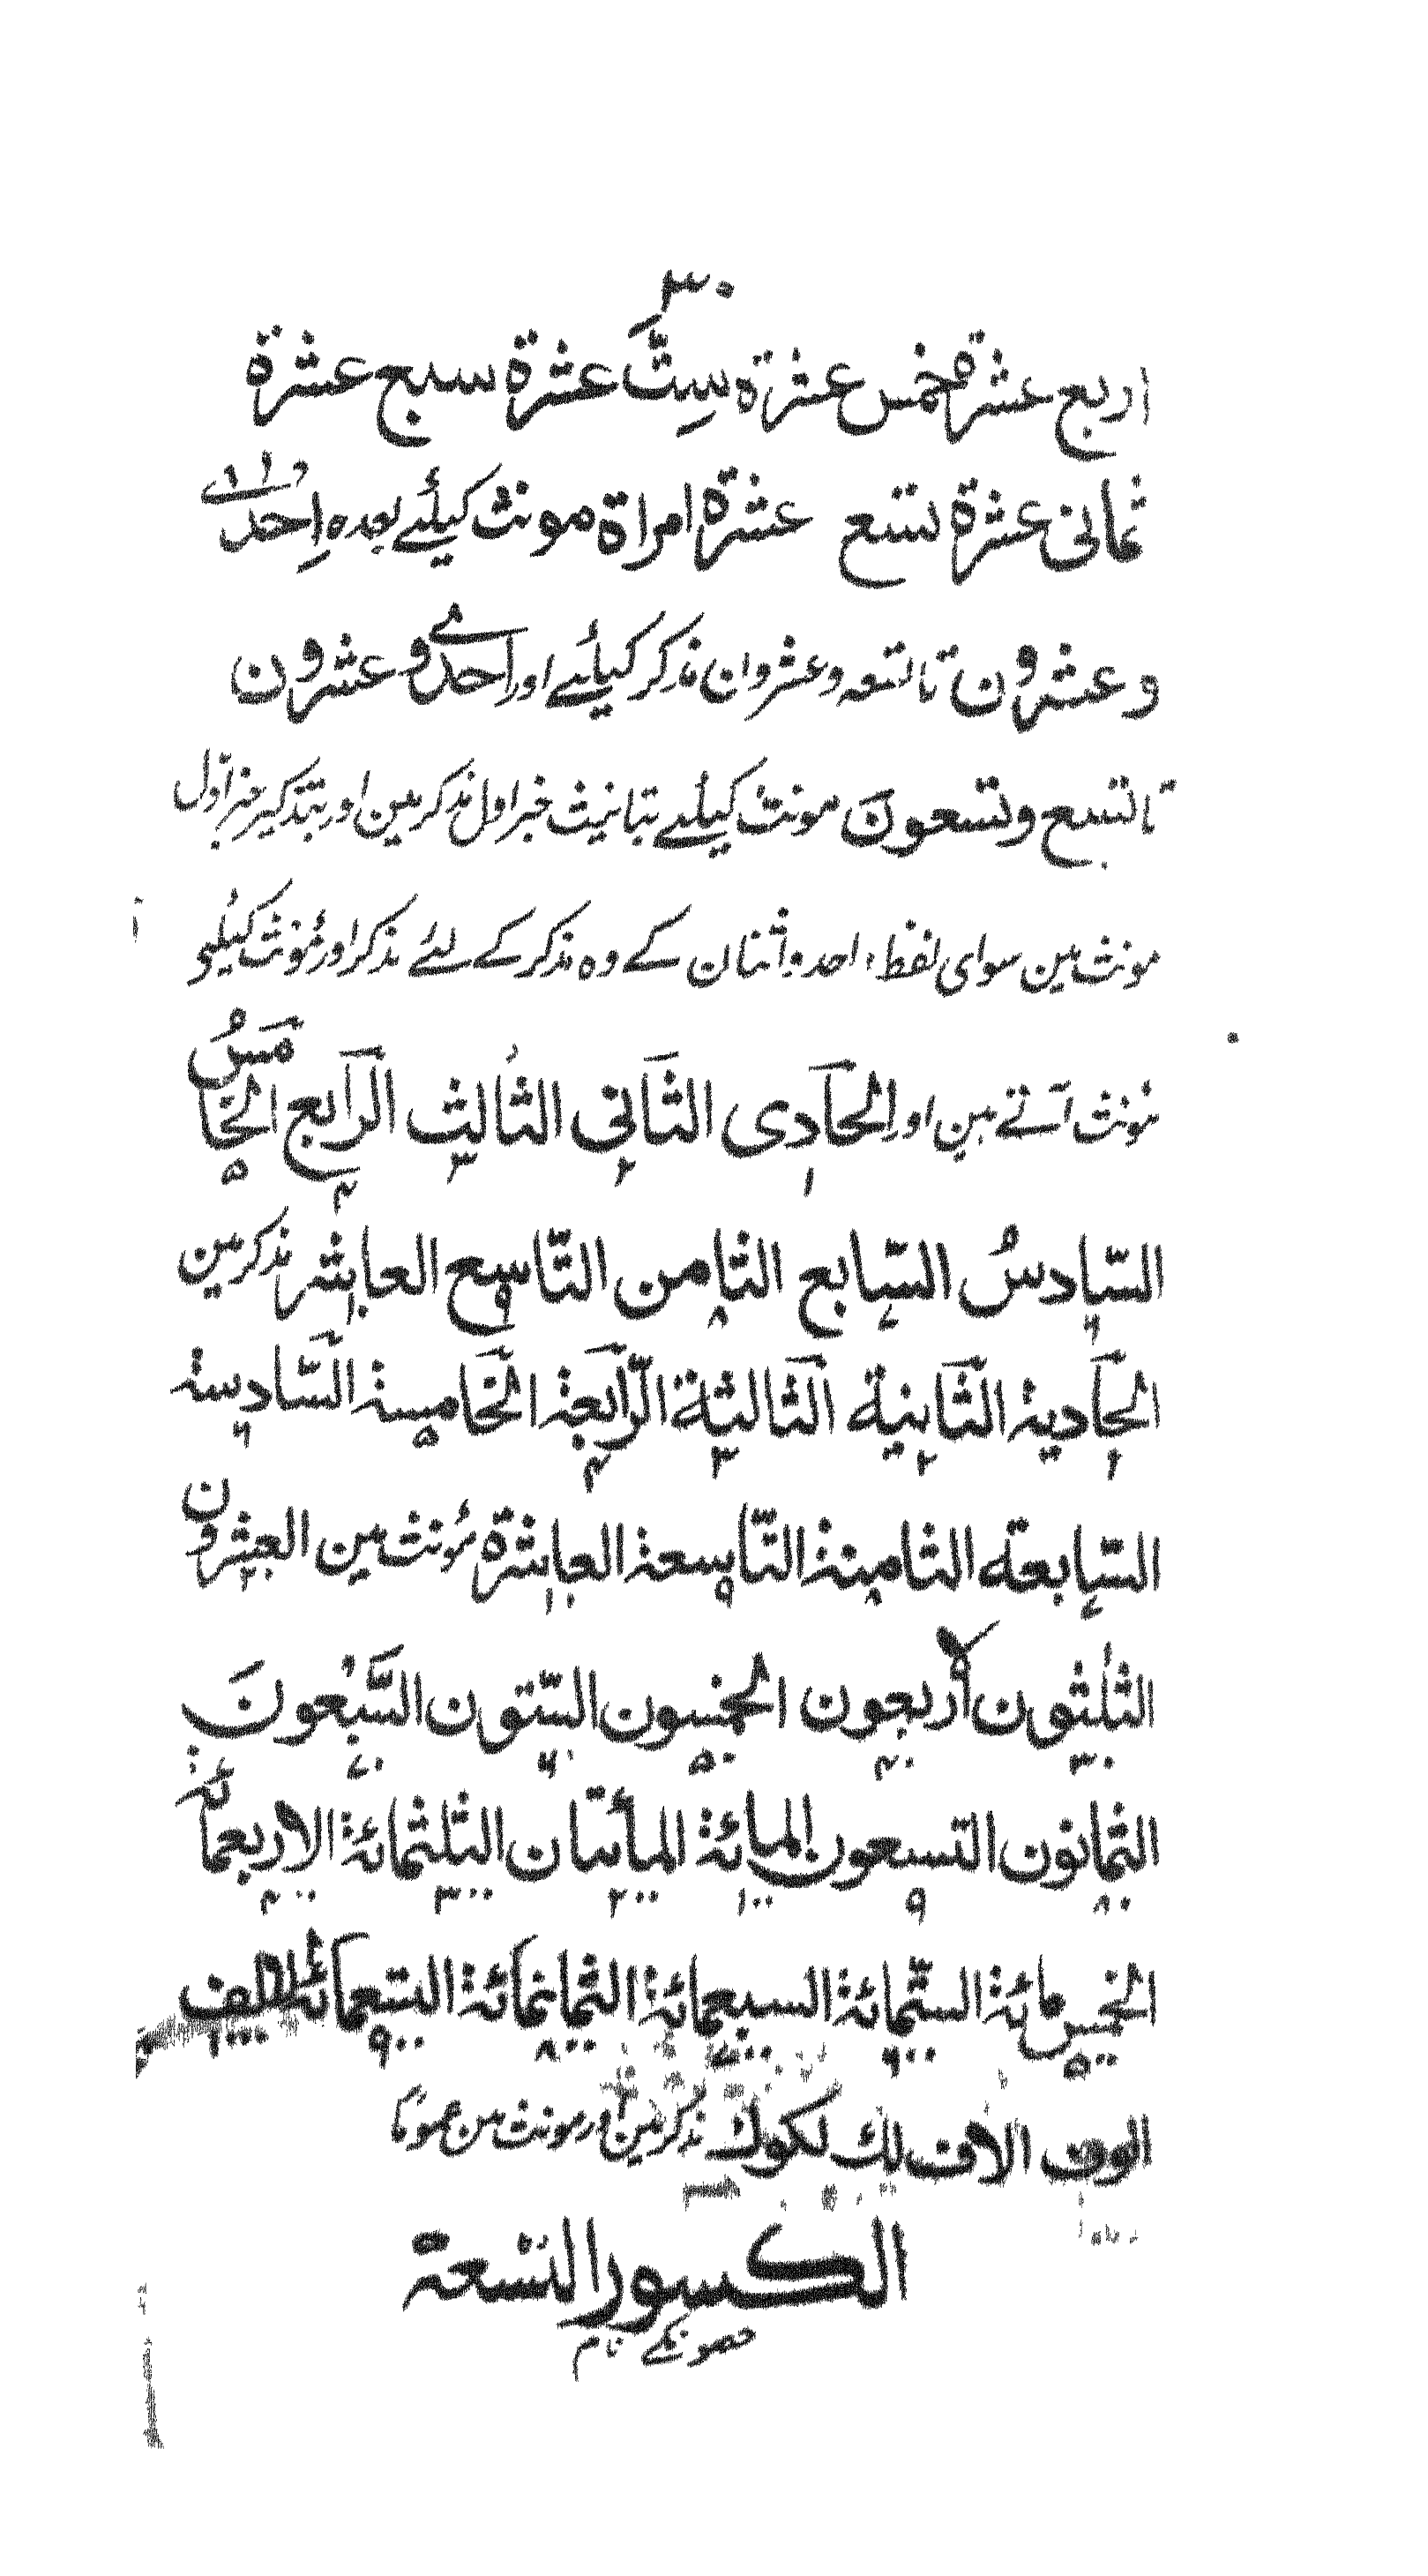 ٣٠
اربع عشرة خمس عشرة ستّ عشرة سبع عشرة
ثمانی عشرة تسع عشرة امراة مونث کیلئے بعدہ اِحدے
و عشرون تا تسعہ و عشروان مذکر کیلئے اور احدے و عشرون
تا تسع و تسعون مونث کیلئے بتانیث خبر اول مذکر مین اور بتذکیر خبر اوّل
مونث مین سوای لفظ احد و اثنان کے وہ مذکر کے لئے مذکر اور مُونث کیلیی
مُونث آتے ہین اور الحادی الثانی الثالث الرابع الخامسُ
١ ٢ ٣ ۴ ۵
السّادسُ السّابع الثامن التّاسع العاشر مذکر مین
۶ ٧ ٨ ٩ ١٠
الحادیة الثانیة الثالثة الرّابعة الخامسة السّادسة
١ ٢ ٣ ۴ ۵ ۶
السّابعة الثامنة التّاسعة العاشرة مُونث مین العشرون
٧ ٨ ٩ ١٠ ٢٠
الثلثون الاربعون الخمسون السّتون السَّبْعونَ
٣٠ ۴٠ ۵٠ ۶٠ ٧٠
الثمانون التسعون المائة المأتان الثلثمائة الاربعمائة
٨٠ ٩ ١٠٠ ٢٠٠ ٣٠٠ ۴٠٠
الخمس مائة الستّمائة السبعمائة الثمانمائة التسعمائة الالف
۵٠٠ ۶٠٠ ٧٠٠ ٨٠٠ ٩٠٠ ١٠٠٠
الوف الاف لك لكوك مذکر مین اور مونث مین عمومًا
الکسور التسعة
حصونکے نام